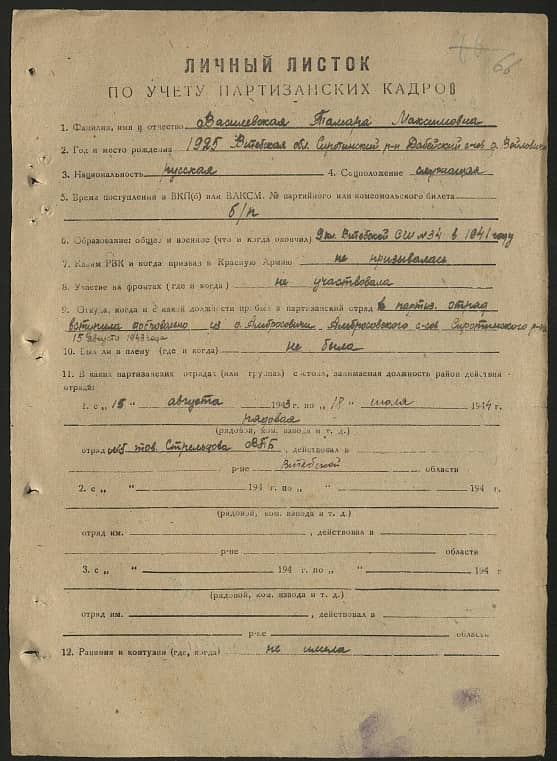 66
ЛИЧНЫЙ ЛИСТОК
ПО УЧЕТУ ПАРТИЗАНСКИХ КАДРОВ
1. Фамилия, имя и отчество Василевская Тамара Максимовна
2. Год и место рождения 1925 Витебская обл. Сиротинский р-н Добейский с-сов д. Войлово
3. Национальность русская 4. Соцположение служащая
5. Время поступления в ВКП(б) или ВЛКСМ. № партийного или комсомольского билета
б/п
6. Образование: общее и военное (что и когда окончил) 9 кл. Витебской СШ №34 в 1941 году
7. Каким РВК и когда призван в Красную Армию не призывалась
8. Участие на фронтах (где и когда) не участвовала
9. Откуда, когда и в какой должности прибыл в партизанский отряд в партиз. отряд
вступила из д. Амбросовичи Амбросовского с-сов Сиротинского р-на
15 августа 1943 года
10. Был ли в плену (где и когда) не была
11. В каких партизанских отрядах (или группах) состоял, занимаемая должность район действия
отряда:
1. с „ 15 “ августа 1943 г. по „ 18 “ июля 1944 г.
рядовая
(рядовой, ком. взвода и т. д.)
отряд №5 тов. Стрельцова ВПБ, действовал в
р-не Витебской области
2. с „ “ 194 г. по „ “ 194 г.
(рядовой, ком. взвода и т. д.)
отряд им. , действовал в
р-не области
3. с „ “ 194 г. по „ “ 194 г
(рядовой, ком. взвода и т. д.)
отряд им. , действовал в
р-не область
12. Ранения и контузии (где, когда) не имела